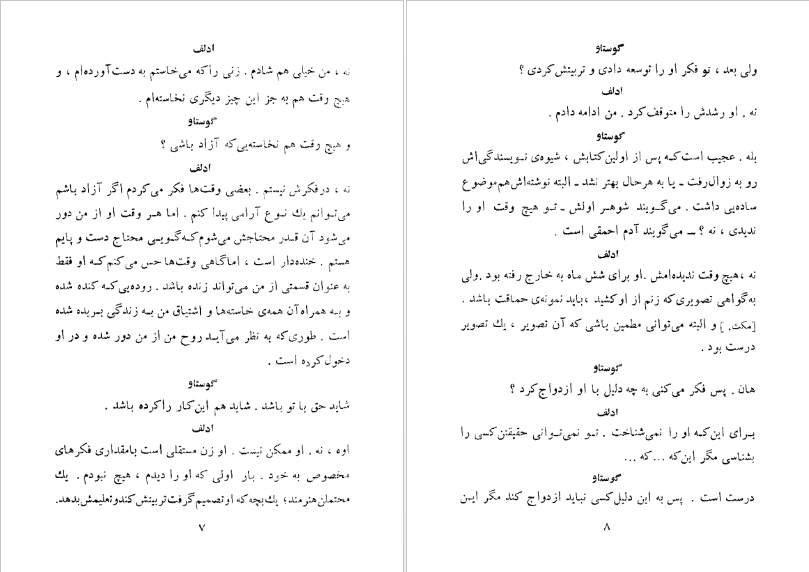 ادلف
نه ، من خیلی هم شادم . زنی را که می‌خاستم به دست‌آورده‌ام ، و
هیچ وقت هم به جز این چیز دیگری نخاسته‌ام .
گوستاو
و هیچ وقت هم نخاسته‌یی‌که آزاد باشی ؟
ادلف
نه ، درفکرش نیستم . بعضی وقت‌ها فکر می‌کردم اگر آزاد باشم
می‌توانم یك نوع آرامی پیدا کنم . اما هر وقت او از من دور
می‌شود آن قدر محتاجش می‌شوم‌که‌گویی محتاج دست و پایم
هستم . خنده‌دار است ، اماگاهی وقت‌ها حس می‌کنم‌که او فقط
به عنوان قسمتی از من می‌تواند زنده باشد . روده‌یی‌که کنده شده
و به همراه آن همه‌ی خاسته‌ها و اشتیاق من به زندگی بریده شده
است . طوری‌که به نظر می‌آید روح من از من دور شده و در او
دخول‌کرده است .
گوستاو
شاید حق با تو باشد . شاید هم این‌کار را کرده باشد .
ادلف
اوه ، نه . او ممکن نیست . او زن مستقلی است بامقداری فکرهای
مخصوص به خرد . بار اولی که او را دیدم ، هیچ نبودم . یك
محتملن هنرمند؛ یك‌بچه‌که اوتصمیم‌گرفت‌تربیتش‌کندوتعلیمش‌بدهد.
۷
گوستاو
ولی بعد ، تو فکر او را توسعه دادی و تربیتش‌کردی ؟
ادلف
نه . او رشدش را متوقف‌کرد . من ادامه دادم .
گوستاو
بله . عجیب است‌که پس از اولین‌کتابش ، شیوه‌ی نویسندگی‌اش
رو به زوال‌رفت ـ یا به هرحال بهتر نشد ـ البته نوشته‌اش‌هم‌موضوع
ساده‌یی داشت . می‌گویند شوهر اولش ـ تو هیچ وقت او را
ندیدی ، نه ؟ ــ می‌گویند آدم احمقی است .
ادلف
نه ،هیچ وقت ندیده‌امش .او برای شش ماه به خارج رفته بود .ولی
به‌گواهی تصویری‌که زنم از او کشید ،باید نمونه‌ی حماقت باشد .
[مکث. ] و البته می‌توانی مطمین باشی که آن تصویر ، یك تصویر
درست بود .
گوستاو
هان . پس فکر می‌کنی به چه دلیل با او ازدواج‌کرد ؟
ادلف
برای این‌که او را نمی‌شناخت . تو نمی‌توانی حقیقتن‌کسی را
بشناسی مگر این‌که ...که ...
گوستاو
درست است . پس به این دلیل‌کسی نباید ازدواج کند مگر این
۸